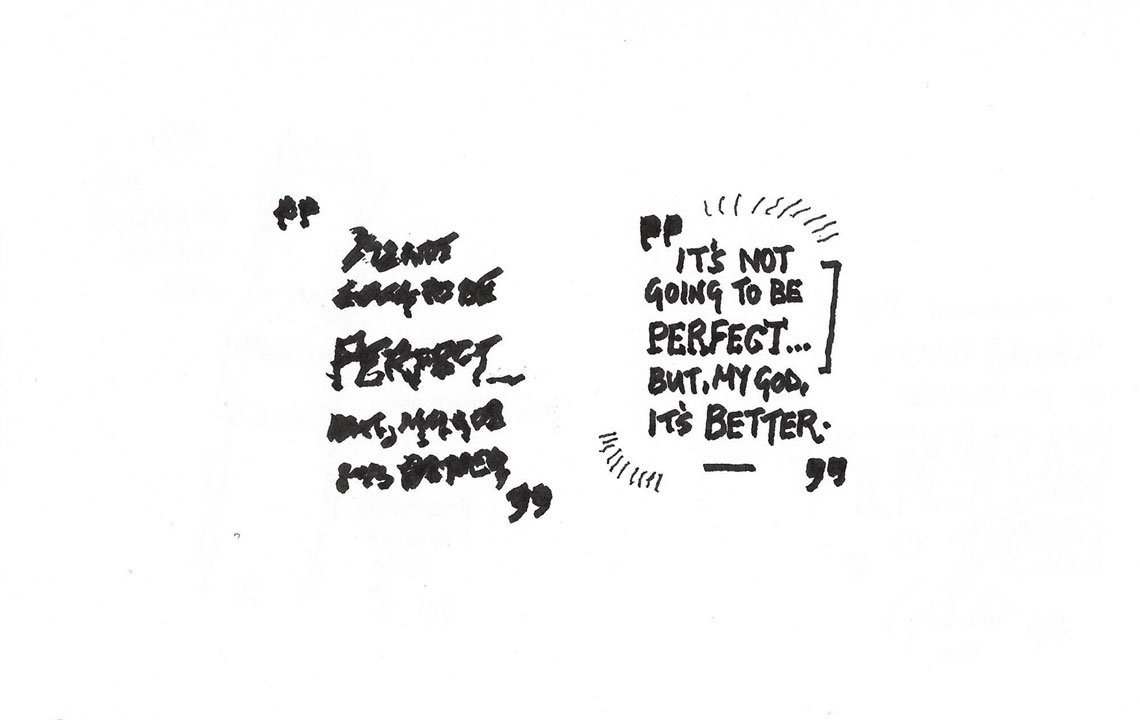 "
NOT
GOING TO BE
PERFECT...
BUT, MY GOD
ITS BETTER,
"
"
IT'S NOT
GOING TO BE
PERFECT...
BUT, MY GOD,
IT'S BETTER.
"